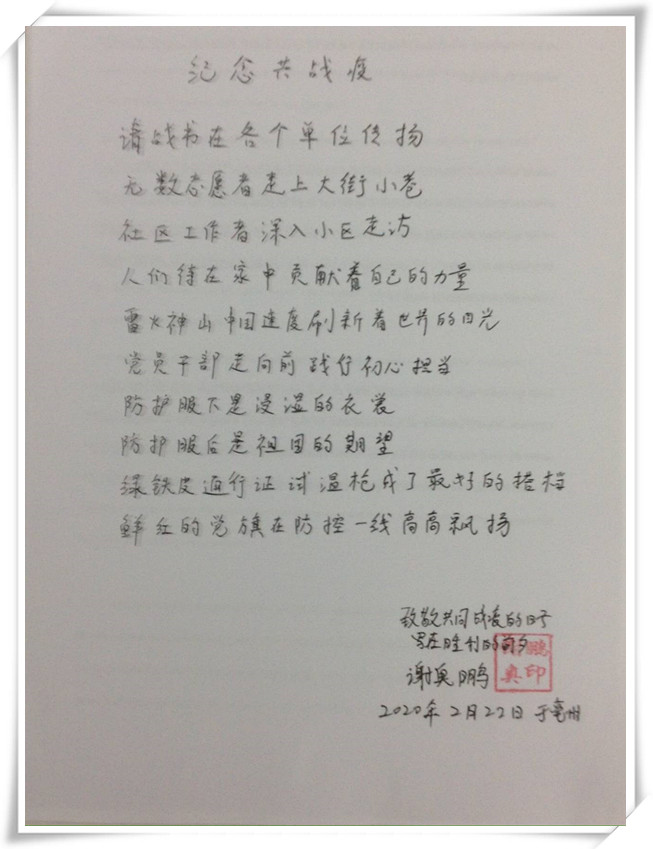 纪念共战疫
请战书在各个单位传扬
无数志愿者走上大街小巷
社区工作者深入小区走访
人们待在家中贡献着自己的力量
雷火神山中国速度刷新着世界的目光
党员干部走向前 践行初心担当
防护服下是浸湿的衣裳
防护服后是祖国的期望
绿铁皮通行证 试温枪成了最好的搭档
鲜红的党旗在防控一线高高飘扬
致敬共同战疫的日子
写在胜利的前夕
谢奥鹏
鹏
奥印
2020年2月22日 于亳州